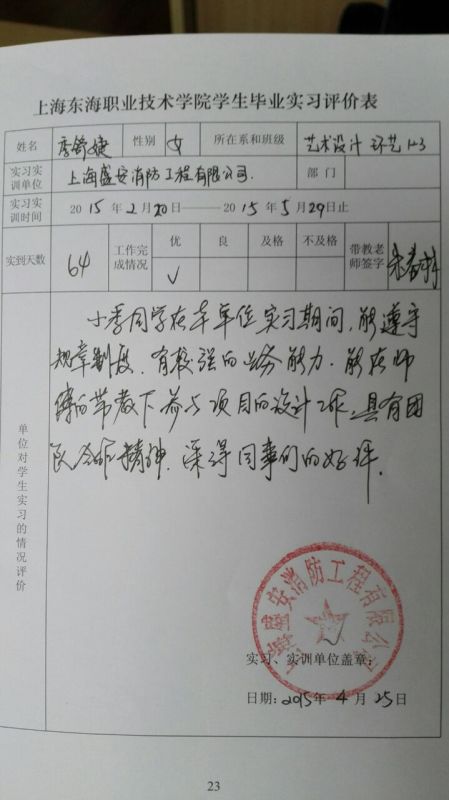 上海东海职业技术学院学生毕业实习评价表
姓名 季舒婕 性别 女 所在系和班级 艺术设计 环艺12-3
实习实训单位 上海盛安消防工程有限公司. 部门
实习实训时间 2015年2月20日——2015年5月29日止
实到天数 64 工作完成情况 优 良 及格 不及格 带教老师签字
√
单位对学生实习的情况评价
小季同学在本单位实习期间,能遵守
规章制度、有较强的业务能力.能在师
傅的带教下参与项目的设计工作,具有团
队合作精神.深得同事们的好评.
上海盛安消防工程有限公司
实习、实训单位盖章:
日期:2015年4月25日
23